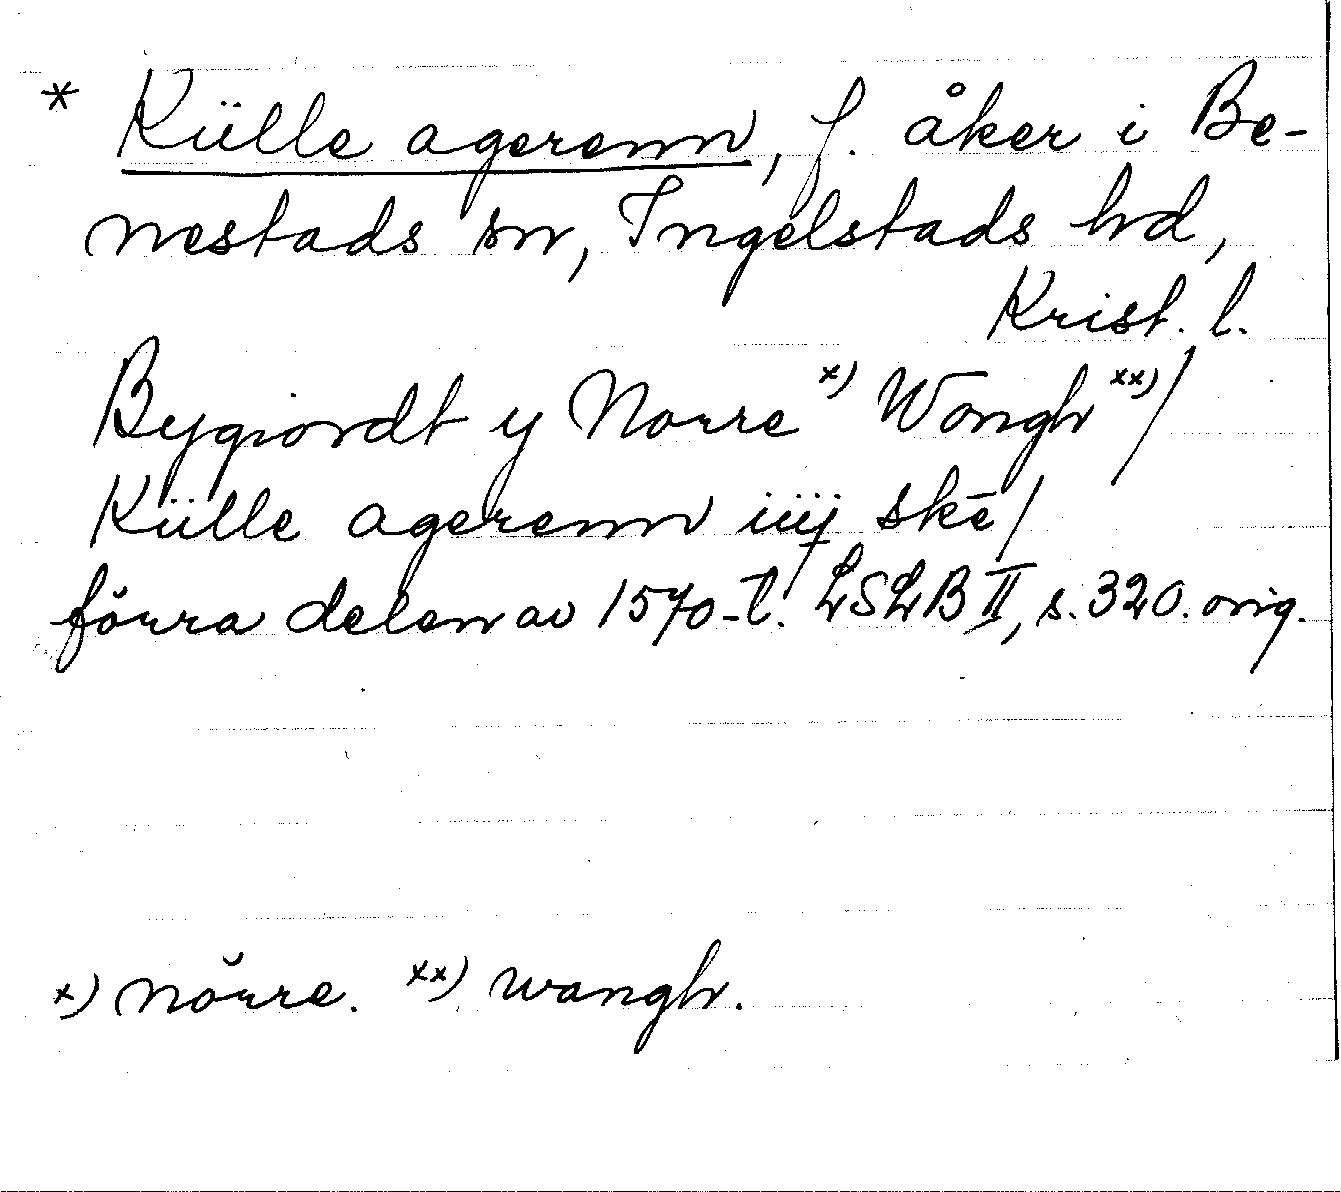 * Külle agerenn, f. åker i Be-
nestads sn, Ingelstads hd,
Krist. l.
Bygiordt y Norre x) Wongh xx)/
Külle agerenn iiij skē/
förra delen av 1570-t. LSLB II, s. 320. orig.
x) nŏrre. xx) wangh.